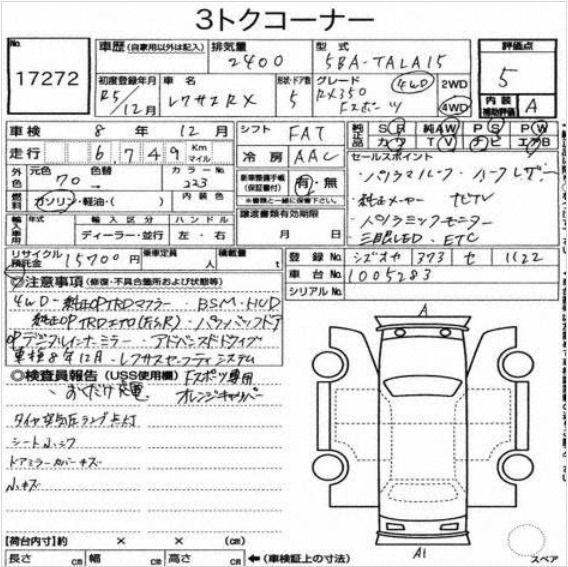 3トクコーナー
No. 17272
車歴 (自家用以外は記入) 排気量 2400 型式 5BA-TALA15 評価点 5
初度登録年月 R5/12月 車名 レクサスRX 形状・ドア数 5 グレード RX350 Fスポーツ 4WD 2WD 4WD
内装補助評価 A
車検 8年 12月 シフト FAT 純正品 SR 純AW PS PW カワ TV ナビ エアB
走行 6,749 Km マイル 冷房 AAC セールスポイント
外色 元色 70 色→ カラーNo. 223 新車整備手帳(保証書付) 有・無 ・パノラマルーフ ・ハーフレザー
燃料 ガソリン・軽油・( ) 内装色 ※書類と一緒に保管して下さい。 ・純正メーカー ナビTV
輸入車用 年式 輸入区分 ハンドル 譲渡書類有効期限 ・パノラミックモニター
ディーラー・並行 左・右 月 日 ・三眼LED ・ETC
リサイクル預託金 15700円 乗車定員 人 積載量 t 登録No. シズオカ 373 セ 1122
車台No. 1005283
シリアルNo.
◎注意事項 (修復・不具合箇所および状態等)
4WD・純正OPTRDマフラー ・BSM・HUD
純正OPTRDエアロ(F.S.R) ・パワーバックドア
OPデジタルインナーミラー ・アドバンスドドライブ
車検8年12月 ・レクサスセーフティシステム
◎検査員報告 (USS使用欄) Fスポーツ専用
・おくだけ充電 オレンジキャリパー
タイヤ空気圧ランプ点灯
シート小シワ
ドアミラーカバーキズ
小キズ
A
A1
【荷台内寸】約 × × (cm)
長さ cm 幅 cm 高さ cm ←(車検証上の寸法) スペア